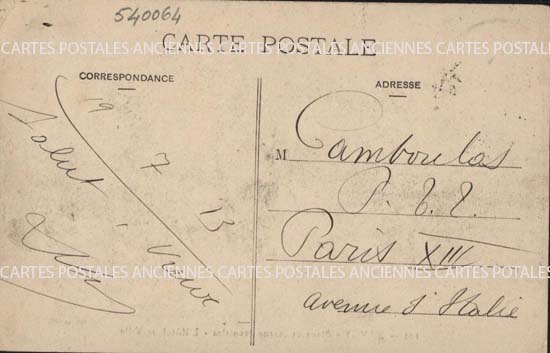 540064
CARTE POSTALE
CARTES POSTALES ANCIENNES CARTES POSTALES ANCIENNES CARTES POSTALES
CORRESPONDANCE
ADRESSE
19 7 13
Salut
M Camboulas
P. T. T.
Paris XIII
avenue d'Italie
CARTES POSTALES ANCIENNES CARTES POSTALES ANCIENNES CARTES POSTALES